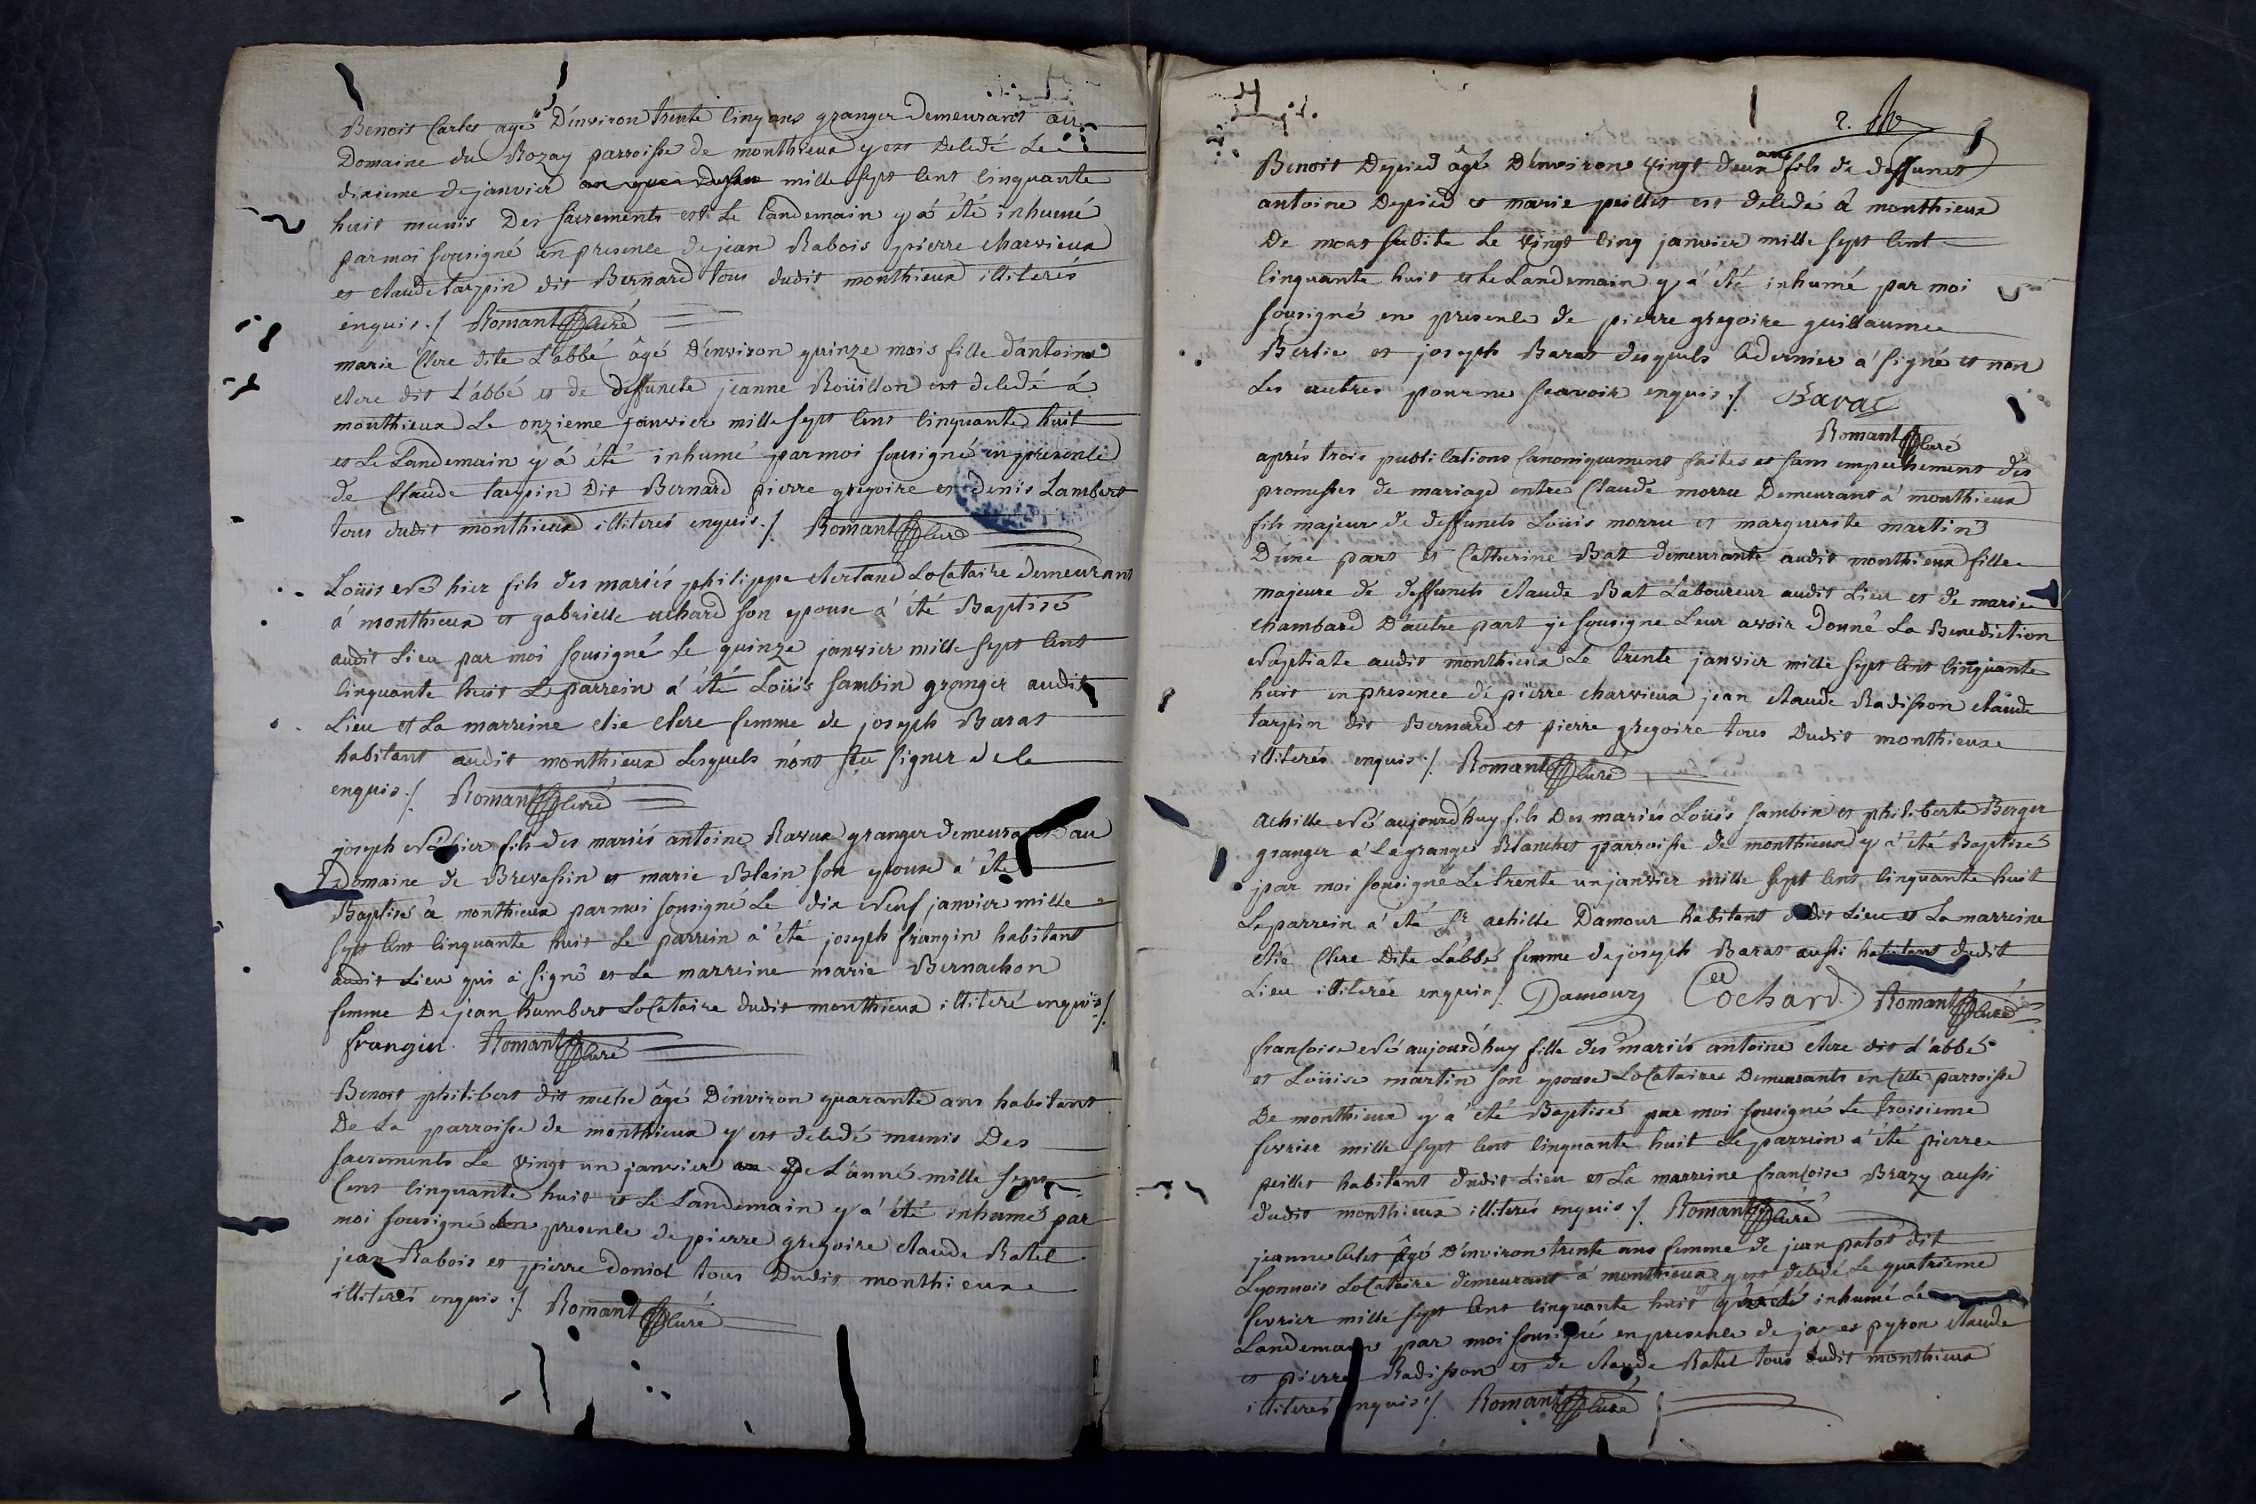 Benoit Carles agé D'environ trente cinq ans granger demeurant au
Domaine du Rozay parroisse de monthieux y est decedé Le
dixieme de janvier mille sept cent cinquante
huit munis Des sacrements et Le Landemain y a été inhumé
par moi sousigné en presence de jean Rabois pierre charvieux
et claude tarpin dit Bernard tous dudit monthieux illiterés
enquis ./. Romant Curé
marie Clere dite L'abbé âgé D'environ quinze mois fille d'antoine
clere dit L'abbé et de deffuncte jeanne Roüillon est decedé à
monthieux Le onzieme janvier mille sept cent cinquante huit
et Le Landemain y a été inhumé par moi sousigné en presence
de Claude tarpin Dit Bernard pierre gregoire et denis Lambert
tous dudit monthieux illiterés enquis ./. Romant Curé
Loüis Né hier fils des mariés philippe clertand Locataire demeurant
à monthieux et gabrielle uchard son epouse a été Baptisé
audit Lieu par moi sousigné Le quinze janvier mille sept cent
cinquante huit Le parrein a été Loüis sambin granger audit
Lieu et La marreine clie clere femme de joseph Barat
habitant audit monthieux Lesquels n'ont sçu signer de ce
enquis ./. Romant Curé
joseph Né hier fils des mariés antoine Ravux granger demeurant au
Domaine de Brevassin et marie Blain son epouse a été
Baptisé à monthieux par moi sousigné Le dix Neuf janvier mille
sept cent cinquante huit Le parrein a été joseph frangin habitant
audit Lieu qui a signé et La marreine marie Bernachon
femme De jean humbert Locataire dudit monthieux illiteré enquis ./.
frangin Romant Curé
Benoit philibert dit miche âgé D'environ quarante ans habitant
De La parroisse de monthieux y est decedé munis Des
sacrements Le vingt un janvier de L'année mille sept
Cent cinquante huit et Le Landemain y a été inhumé par
moi sousigné en presence de pierre gregoire claude Ratel
jean Rabois et pierre doniol tous Dudit monthieux
illiterés enquis ./. Romant Curé
2.
Benoit Depied âgé D'environ vingt deux ans fils de deffunct
antoine Depied et marie peillet est decedé à monthieux
De mort subite Le vingt cinq janvier mille sept cent
cinquante huit et Le Landemain y a été inhumé par moi
sousigné en presence de pierre gregoire guillaume
Berlie et joseph Barat desquels Le dernier a signé et non
Les autres pour ne sçavoir enquis ./. Barat
Romant Curé
aprés trois publications canoniquement faites et sans empechement des
promesses de mariage entre Claude morru Demeurant à monthieux
fils majeur de deffuncts Loüis morru et marguerite martin
D'une part et Catherine Bat demeurante audit monthieux fille
majeure de deffuncts claude Bat Laboureur audit Lieu et de marie
chambard D'autre part je sousigne Leur avoir donné La Benediction
Nuptiale audit monthieux Le trente janvier mille sept cent cinquante
huit en presence de pierre charvieux jean claude Radisson claude
tarpin dit Bernard et pierre gregoire tous Dudit monthieux
illiterés enquis ./. Romant Curé
achille Né aujourd'huy fils Des mariés Loüis sambin et philiberte Berger
granger à La grange Blanches parroisse de monthieux y a été Baptisé
par moi sousigné Le trente un janvier mille sept cent cinquante huit
Le parrein a été Sr achille Damour habitant dudit Lieu et La marreine
clie Clere Dite L'abbé femme de joseph Barat aussi habitant dudit
Lieu illiterée enquis ./. Damour Cochard Romant Curé
françoise Né aujourd'huy fille des mariés antoine clere dit L'abbé
et Loüise martin son epouse Locataires Demeurants en cette parroisse
De monthieux y a été Baptisé par moi sousigné Le troisieme
fevrier mille sept cent cinquante huit Le parrein a été pierre
peillet habitant dudit Lieu et La marreine françoise Brazy aussi
dudit monthieux illiterés enquis ./. Romant Curé
jeanne âgé D'environ trente ans femme de jean patot dit
Lyonnois Locataire demeurant à monthieux y est decedé Le quatrieme
fevrier mille sept cent cinquante huit inhumé Le
Landemain par moi sousigné en presence de jacques pyron claude
et pierre Radisson et de claude Ratel tous dudit monthieux
illiterés enquis ./. Romant Curé